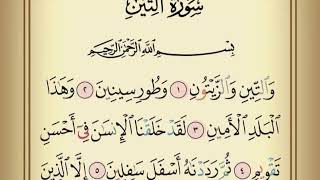 سُورَةُ التِّينِ
بِسْمِ اللَّهِ الرَّحْمَٰنِ الرَّحِيمِ
وَالتِّينِ وَالزَّيْتُونِ ١ وَطُورِ سِينِينَ ٢ وَهَٰذَا
الْبَلَدِ الْأَمِينِ ٣ لَقَدْ خَلَقْنَا الْإِنسَٰنَ فِي أَحْسَنِ
تَقْوِيمٍ ٤ ثُمَّ رَدَدْنَٰهُ أَسْفَلَ سَٰفِلِينَ ٥ إِلَّا الَّذِينَ